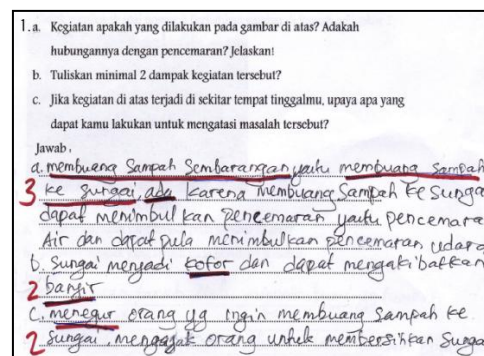 1. a. Kegiatan apakah yang dilakukan pada gambar di atas? Adakah
hubungannya dengan pencemaran? Jelaskan!
b. Tuliskan minimal 2 dampak kegiatan tersebut?
c. Jika kegiatan di atas terjadi di sekitar tempat tinggalmu, upaya apa yang
dapat kamu lakukan untuk mengatasi masalah tersebut?
Jawab,
a. membuang Sampah Sembarangan yaitu membuang sampah
3 ke sungai, ada karena membuang Sampah ke sunga
dapat menimbulkan pencemaran yaitu pencemara
Air dan dapat pula menimbulkan pencemaran udara
b. Sungai menjadi kotor dan dapat mengakibatkan
2 banjir
c. menegur orang yg ingin membuang sampah ke
2 Sungai, mengajak orang untuk membersihkan Sunga